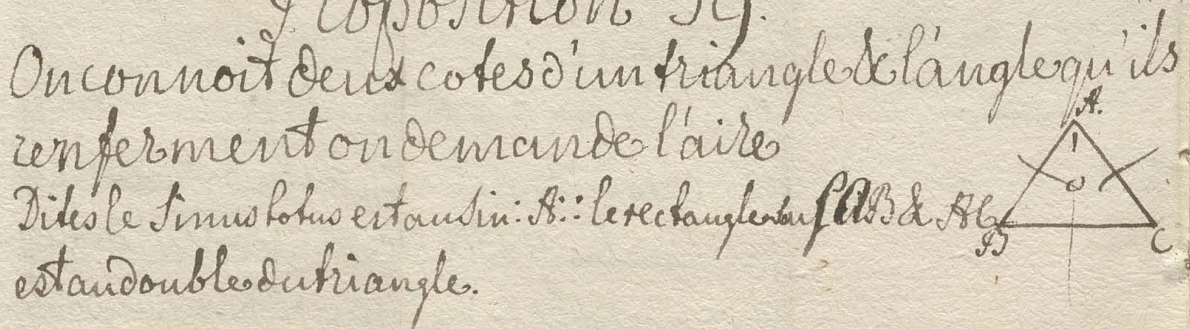 Proposition
On connoit deux cotes d'un triangle & l'angle qu'ils
renferment on demande l'aire
Dites le Sinus totus est au sin: A:: le rectangle AB & AC
est au double du triangle.
A.
B
C